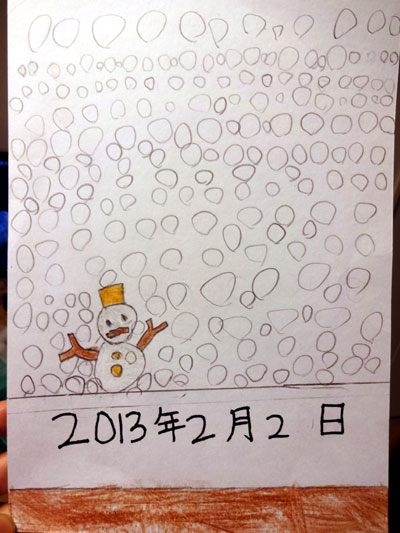 2013年2月2日